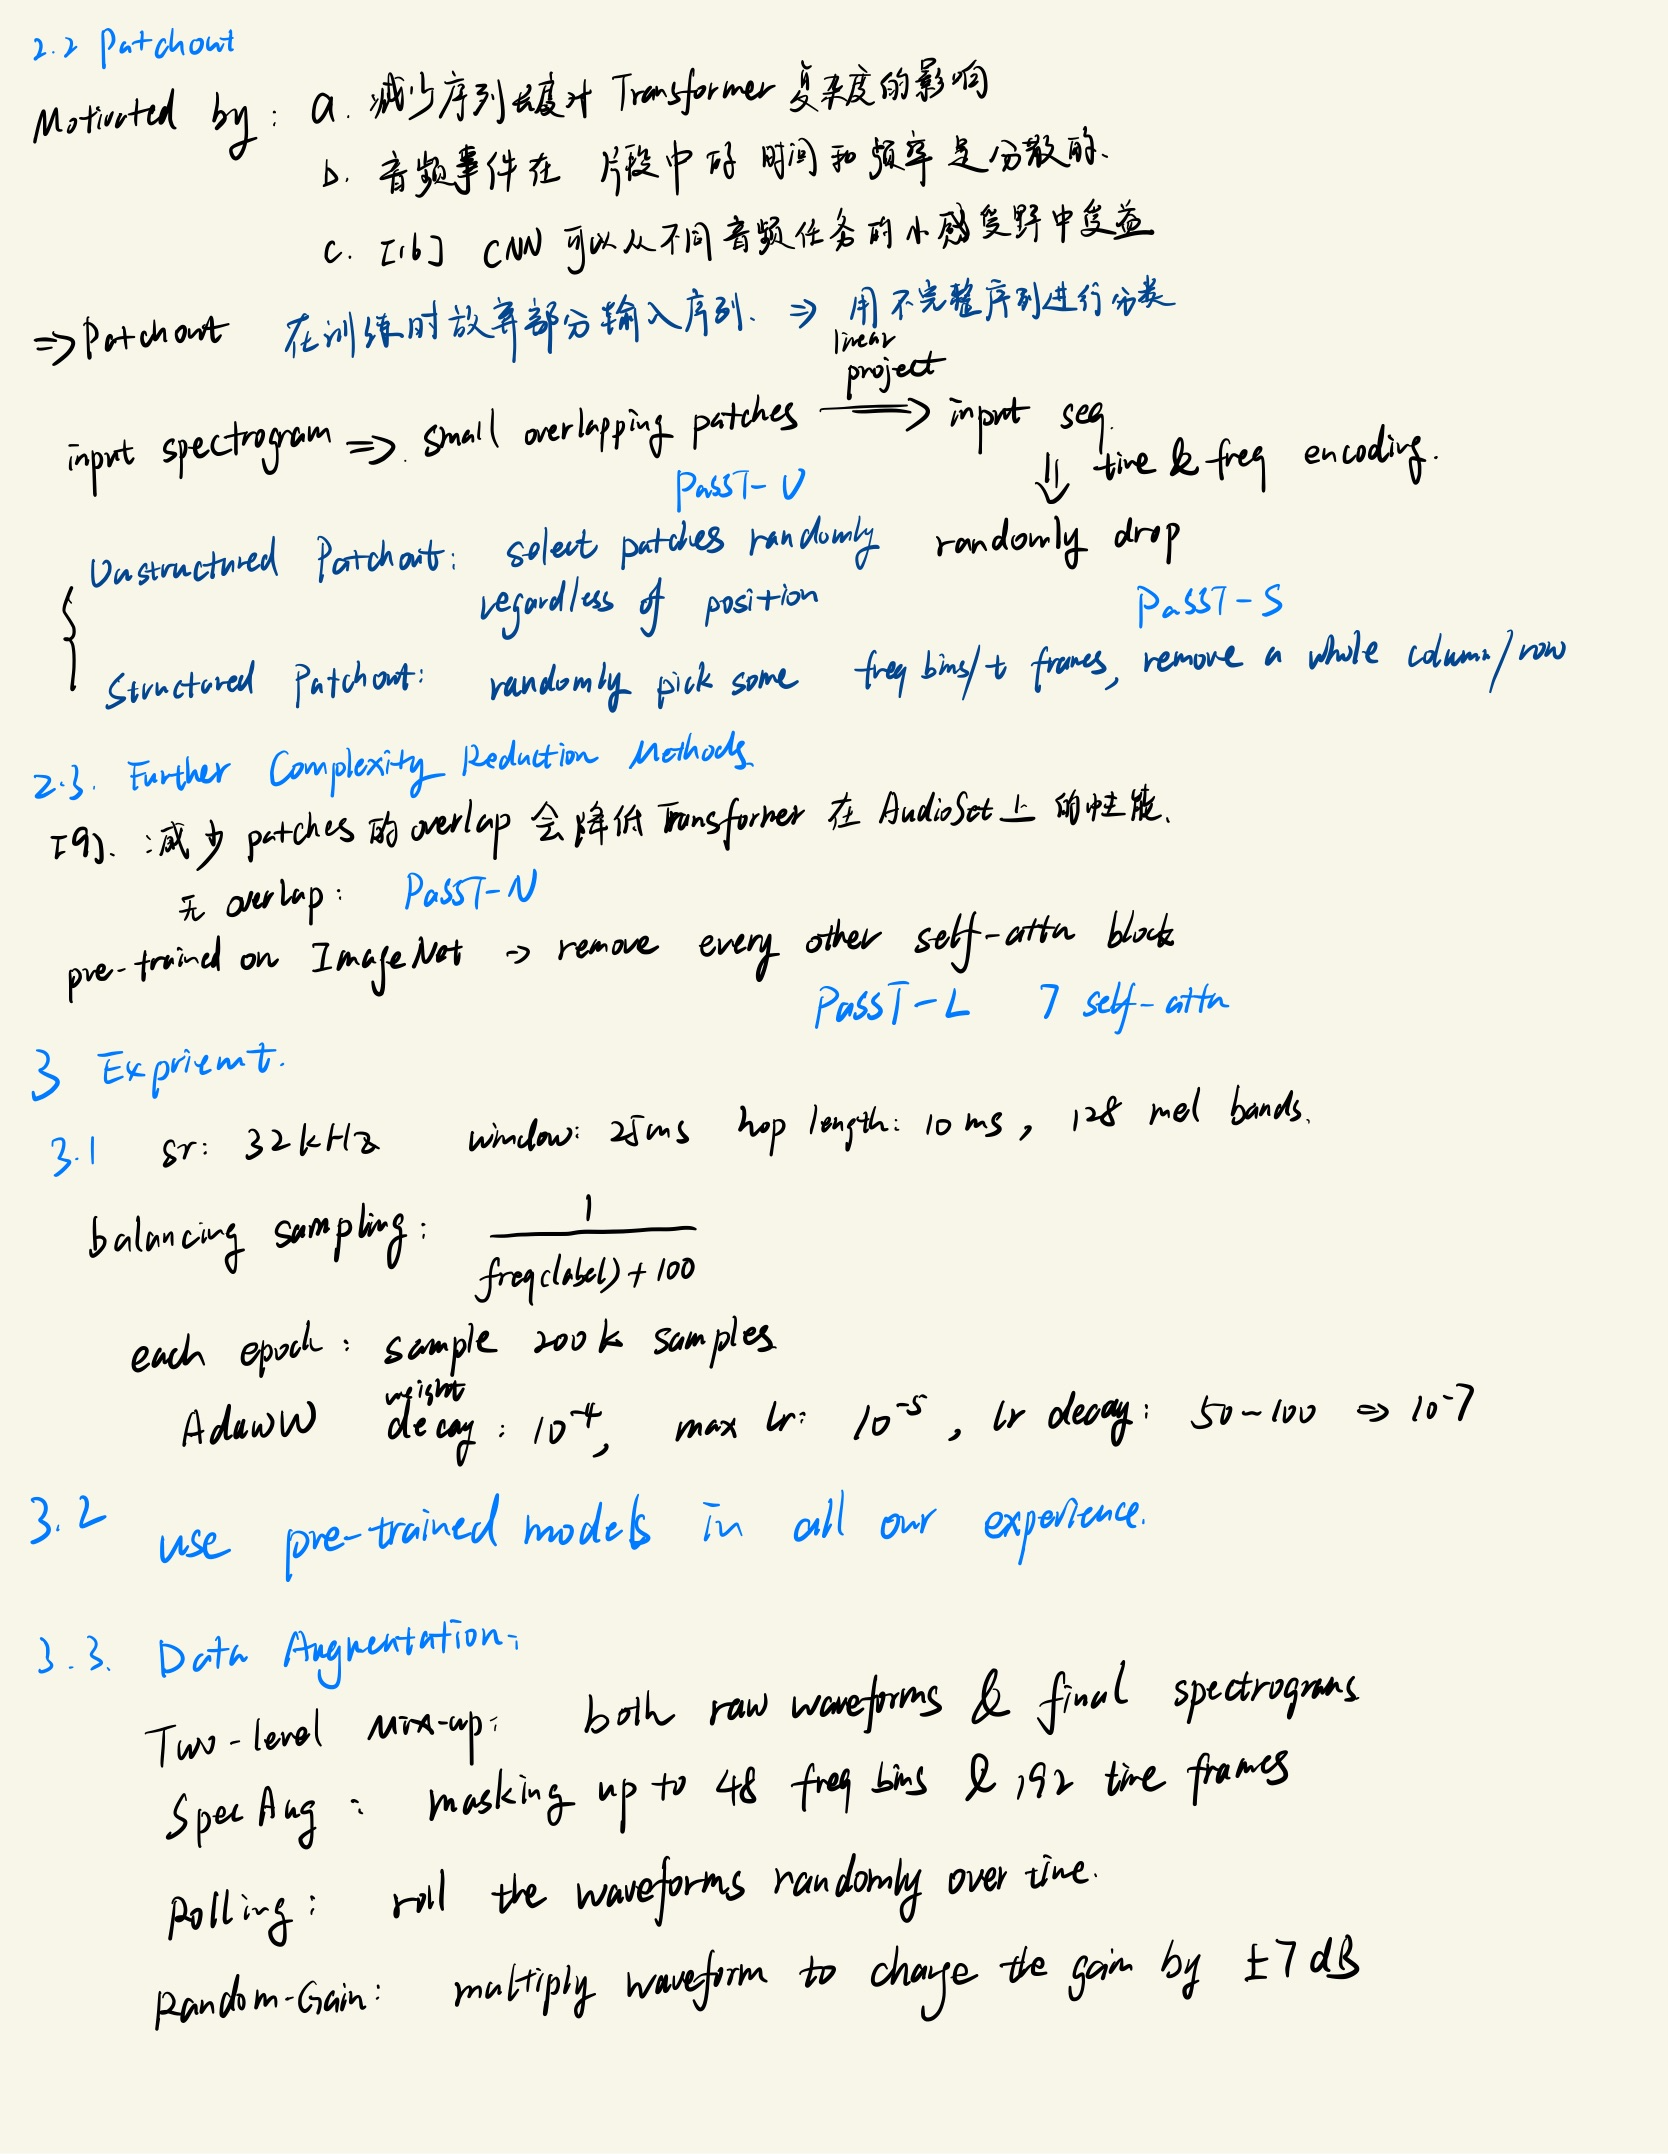 2.2 Patchout
Motivated by: a. 减少序列长度对 Transformer 复杂度的影响
b. 音频事件在 片段中的 时间和频率是分散的.
c. [16] CNN 可以从不同音频任务的小感受野中受益
⇒ Patchout 在训练时放弃部分输入序列. ⇒ 用不完整序列进行分类
linear
project
input spectrogram ⇒ small overlapping patches ⟶ input seq.
⇓ time & freq encoding.
PaSST-U
Unstructured Patchout: select patches randomly randomly drop
regardless of position
PaSST-S
Structured Patchout: randomly pick some freq bins/t frames, remove a whole column/row
2.3. Further Complexity Reduction Methods
[9]. : 减少 patches 的 overlap 会降低 Transformer 在 AudioSet 上 的性能.
无 overlap: PaSST-N
pre-trained on ImageNet → remove every other self-attn block
PassT-L 7 self-attn
3 Expriemt.
3.1 sr: 32kHz window: 25ms hop length: 10 ms, 128 mel bands.
balancing sampling: 1
freq(label) + 100
each epoch: sample 200k samples
weight
AdawW decay: 10^-4, max lr: 10^-5, lr decay: 50~100 ⇒ 10^-7
3.2 use pre-trained models in all our experience.
3.3. Data Augmentation:
Two-level Mix-up: both raw waveforms & final spectrograms
SpecAug : masking up to 48 freq bins & 192 time frames
Rolling: roll the waveforms randomly over time.
Random-Gain: multiply waveform to change the gain by ±7 dB